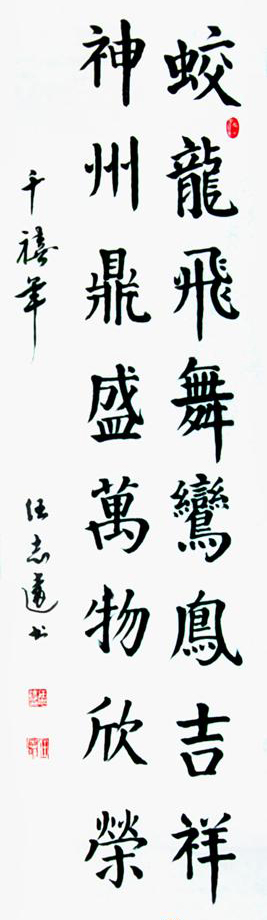 蛟龍飛舞鸞鳳吉祥
神州鼎盛萬物欣榮
千禧年
任志
書